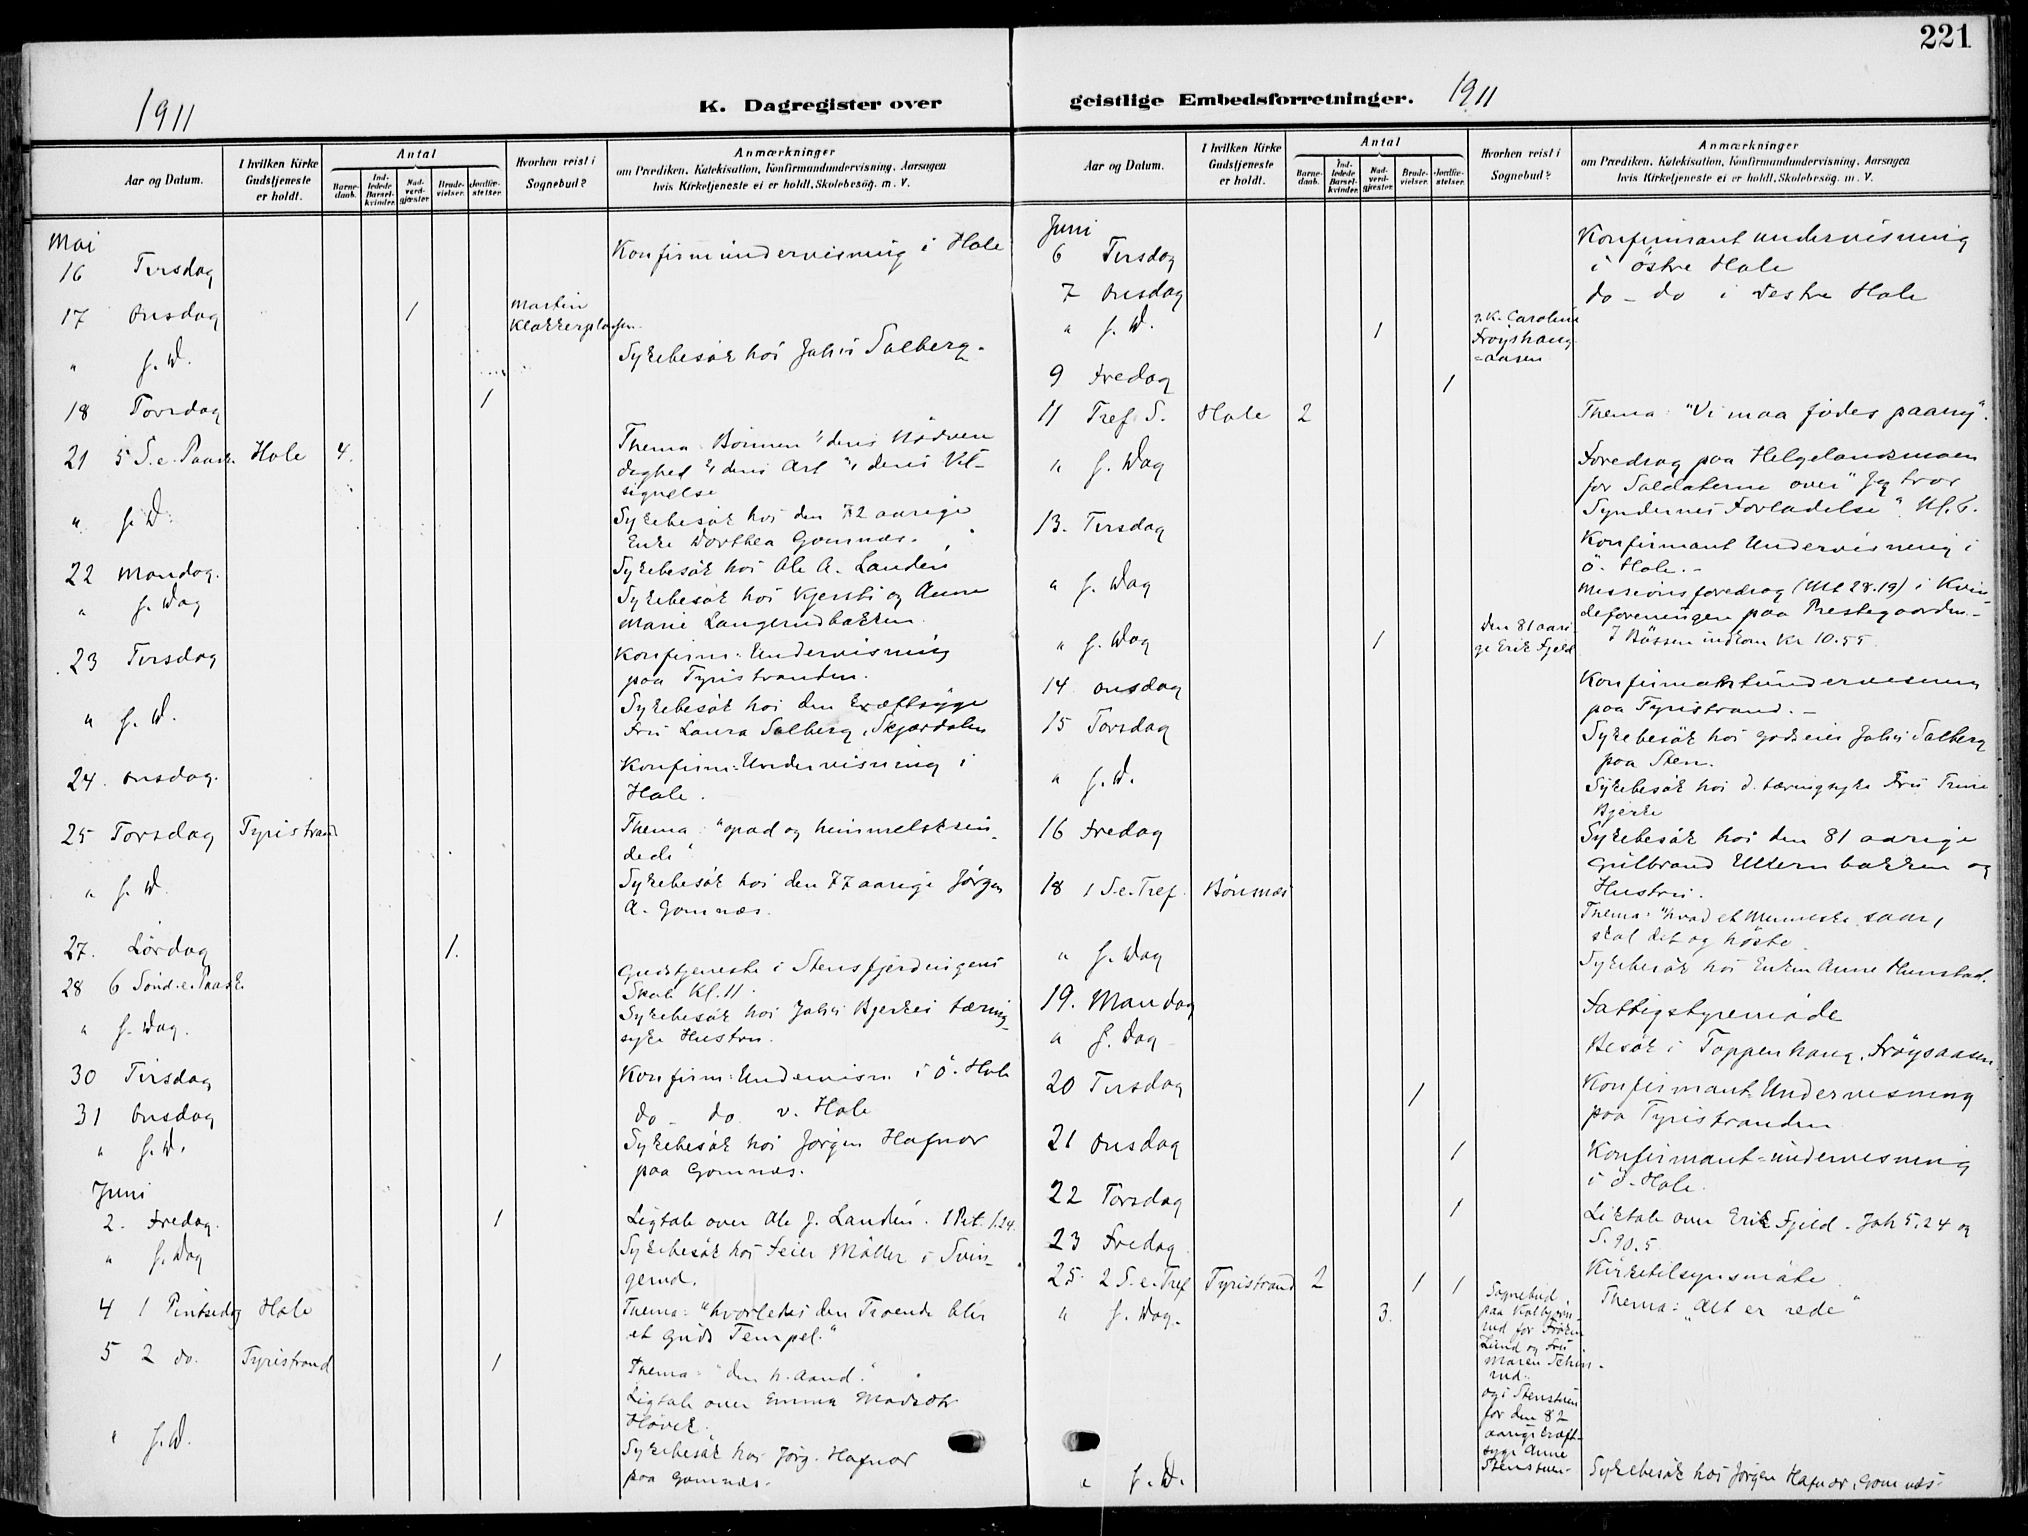 221
1911
K. Dagregister over
geistlige Embedsforretninger. 1911
Aar og Datum.
I hvilken Kirke Gudstjeneste er holdt.
Antal
Barne-daab.
Ind-ledede Barsel-kvinder.
Nad-verd-gjæster.
Brude-vielser.
Jordfæ-stelser.
Hvorhen reist i Sognebud?
Anmærkninger
om Prædiken, Katekisation, Konfirmandundervisning, Aarsagen
hvis Kirketjeneste ei er holdt, Skolebesøg, m. V.
Mai
16 Tirsdag Konfirmundervisning i Hole
17 Onsdag 1 Martin
Klokkerplassen.
" s. D. Sykebesök hos Johs Solberg.
18 Torsdag 1
21 5 S. e. Paask. Hole 4. Thema: Bönnen 1, dens Nödven
dighed 2, dens Art 3, dens Vel-
signelse
" s. D. Sykebesök hos den 72 aarige
Enke Dorthea Gomnæs.
22 Mandag. Sykebesök hos Ole A. Landeri
" s. Dag Sykebesök hos Kjersti og Anne
Marie Langerudbakken.
23 Tirsdag Konfirm: Undervisning
paa Tyristranden.
" s. D. Sykebesök hos den kræftsyge
Fru Laura Solberg, Skjærdalen
24. Onsdag. Konfirm: Undervisning i
Hole.
25 Torsdag Tyristrand Thema: "opad og himmelsksin
dede"
" s. D. Sykebesök hos den 77 aarige Jörgen
A. Gomnæs.
27. Lördag 1.
28 6 Sönd. e. Paask. Gudstjeneste i Stensfjerdingens
Skole Kl. 11.
" s. Dag. Sykebesök hos Johs Bjerkes tæring
syke Hustru.
30 Tirsdag Konfirm: Undervisn i ö. Hole
31 Onsdag do do v. Hole
" s. D. Sykebesök hos Jörgen Hafnor
paa Gomnæs.
Juni
2. Fredag. 1 Ligtale over Ole J. Landeri. 1 Pet. 1.24.
" s. Dag Sykebesök hos Feier Möller i Svin-
gerud.
4 1 Pintsedag Hole Thema: "hvorledes den Troende blir
et Guds Tempel."
5 2 do. Tyristrand 1 Thema: "den h. Aand."
Ligtale over Emma Madsdtr
Hövek.
" s. D. Sykebesök hos Jörg. Hafnor
paa Gomnæs.
Aar og Datum.
I hvilken Kirke Gudstjeneste er holdt.
Antal
Barne-daab.
Ind-ledede Barsel-kvinder.
Nad-verd-gjæster.
Brude-vielser.
Jordfæ-stelser.
Hvorhen reist i Sognebud?
Anmærkninger
om Prædiken, Katekisation, Konfirmandundervisning, Aarsagen
hvis Kirketjeneste ei er holdt, Skolebesøg, m. V.
Juni
6 Tirsdag Konfirmant undervisning
i östre Hole
7 Onsdag do - do i Vestre Hole
" s. D. 1 Caroline
Fröyshaug
=aasen
9 Fredag 1
11 Tref. S. Hole 2 Thema: "Vi maa födes paany".
" s. Dag Foredrag paa Helgelandsmoen
for Soldaterne over "Jeg tror
Syndernes Forladelse". Kl. 6.
13. Tirsdag Konfirmant Undervisning i
Ö. Hole.
" s. Dag Missionsforedrag (Mt 28.19) i Kvin
deforeningen paa Prestegaarden-
I Bössen indkom Kr 10.55.
" s. Dag 1 Den 81 aari-
ge Erik Fjeld
14 Onsdag Konfirmantundervisning
paa Tyristrand.
15 Torsdag Sykebesök hos Godseier Johs Solberg
paa Sten.
" s. D. Sykebesök hos d. tæringsyke Fru Trine
Bjerke
16 Fredag Sykebesök hos den 81 aarige
Gulbrand Ulternbakken og
Hustru.
18 1 S. e. Tref. Bönsnæs Thema: "hvad et Menneske saar,
skal det og höste
" s. Dag Sykebesök hos Enken Anne Hunstad.
19. Mandag Fattigstyremöde
" s. Dag Besök i Toppenhaug, Fröysaasen
20 Tirsdag 1 Konfirmant Undervisning
paa Tyristranden
21 Onsdag 1 Konfirmant=undervisning
i ö. Hole.
22 Torsdag 1 Liktale over Erik Fjeld. Joh 5,24 og
S. 90.5
23 Fredag Kirketilsynsmöte.
25. 2 S. e. Tref Tyristrand 2 1 1 Thema: "Alt er rede"
" s. Dag. 3. Sognebud
paa Kolbjörn
rud for Fröken
Lund og Fru
Maren
rud.
og i Stenstuen
for den 82
aarige kræft-
syge Anne
Stenstuen.
" s. D. Sykebesök hos Jörgen Hafnor, Gomnæs.